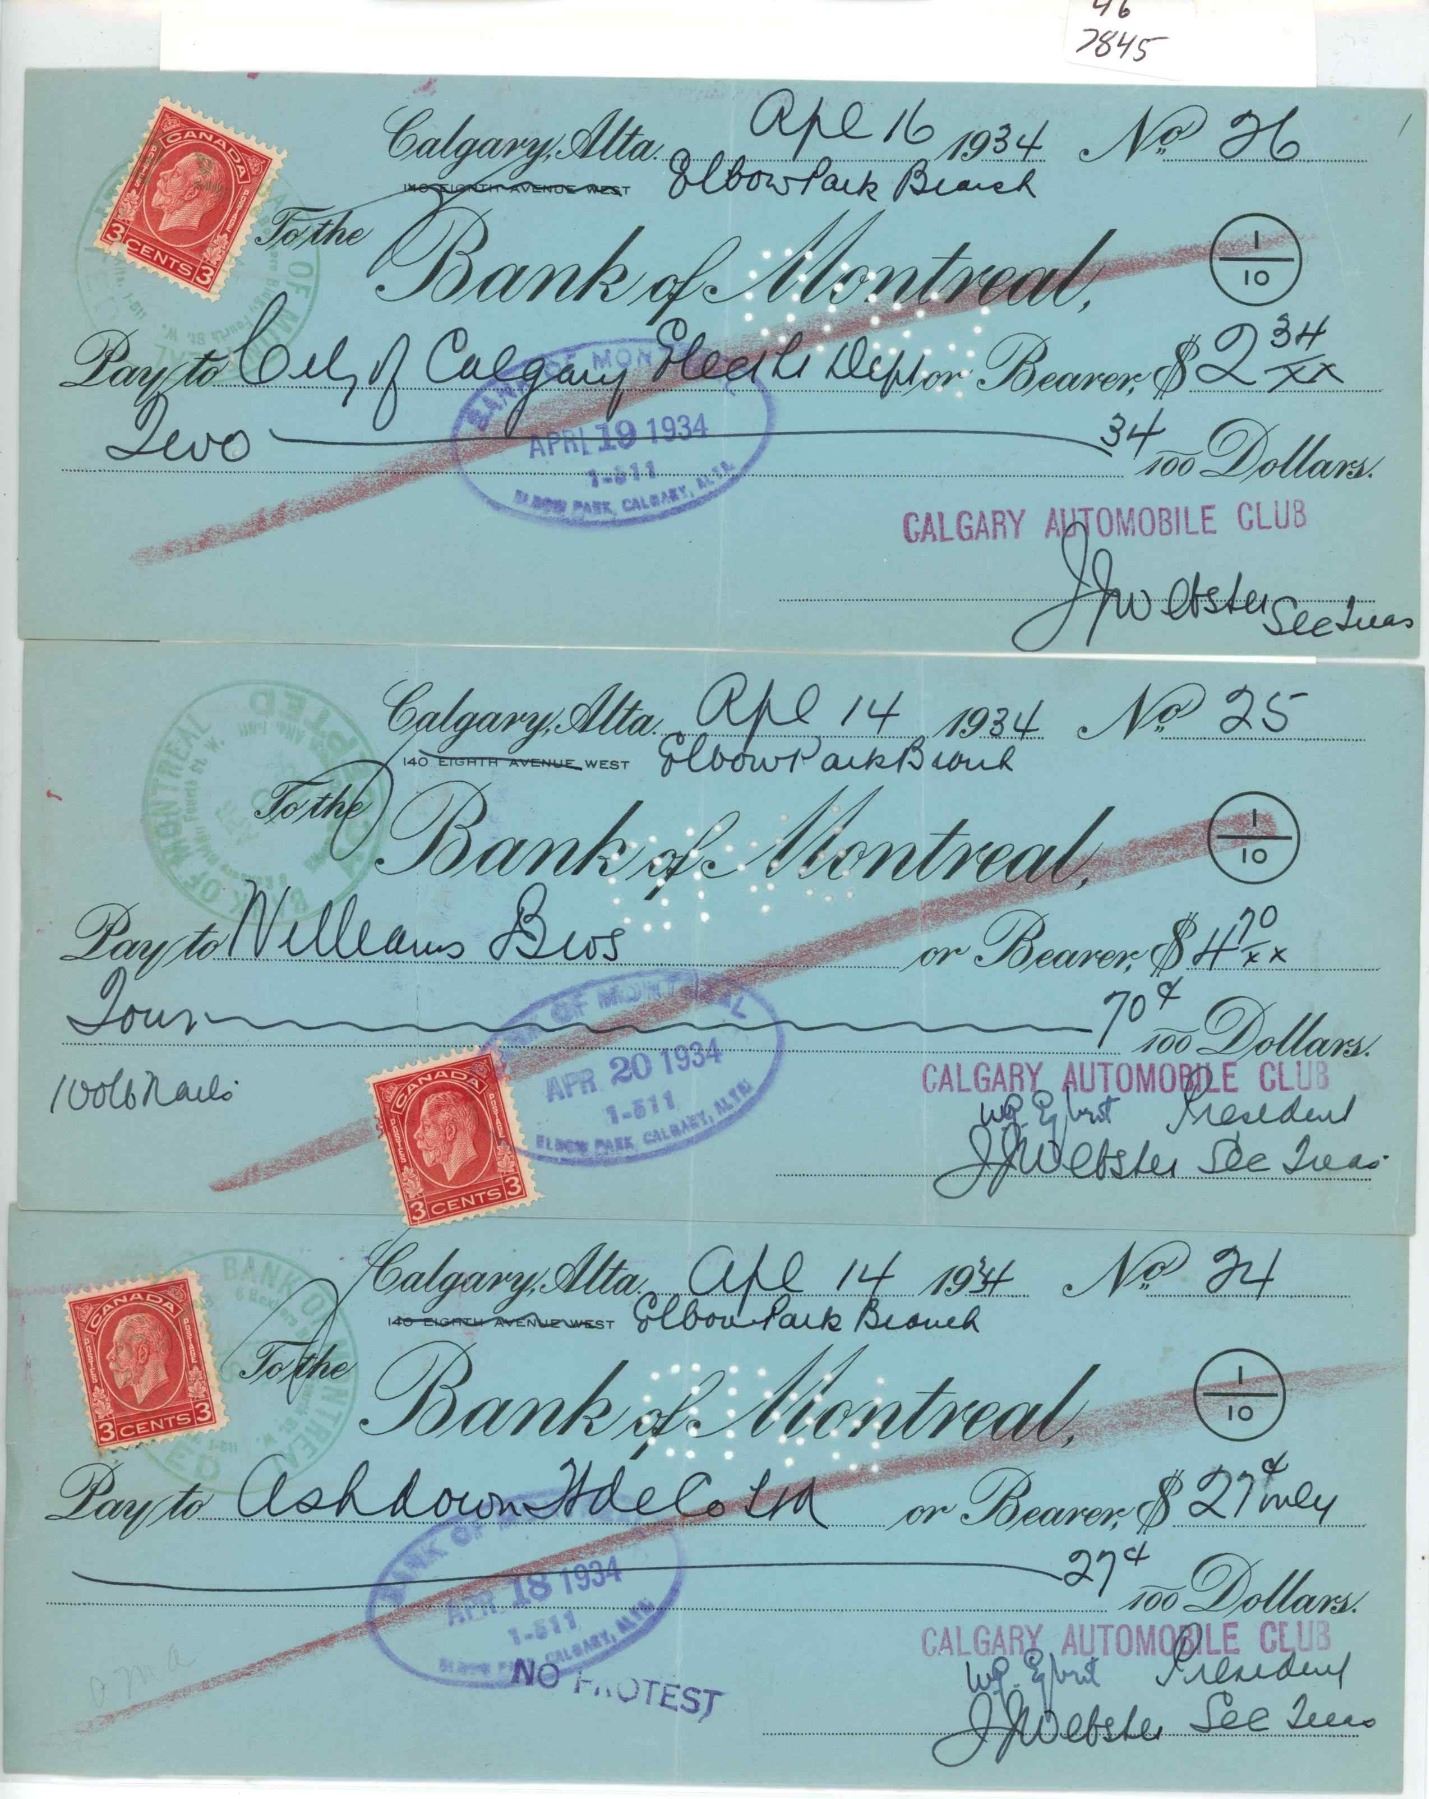 46
7845
Calgary, Alta. Apl 16 1934 No. 26
140 EIGHTH AVENUE WEST Elbow Park Branch
CANADA
3 CENTS 3
To the
Bank of Montreal,
1
10
Pay to City of Calgary Electric Dept or Bearer, $ 2 34/xx
BANK OF MONTREAL
Two 34/100 Dollars.
APR 19 1934
1-511
ELBOW PARK, CALGARY, ALTA.
CALGARY AUTOMOBILE CLUB
J J Webster Sec Treas
BANK OF MONTREAL
ACCEPTED
Calgary, Alta. Apl 14 1934 No. 25
140 EIGHTH AVENUE WEST Elbow Park Branch
To the
Bank of Montreal,
1
10
Pay to Williams Bros or Bearer, $ 4 70/xx
BANK OF MONTREAL
Four 70¢/100 Dollars.
APR 20 1934
1-511
ELBOW PARK, CALGARY, ALTA.
CANADA
3 CENTS 3
CALGARY AUTOMOBILE CLUB
President
J J Webster Sec Treas
BANK OF MONTREAL
Calgary, Alta. Apl 14 1934 No. 24
140 EIGHTH AVENUE WEST Elbow Park Branch
CANADA
3 CENTS 3
To the
Bank of Montreal,
1
10
Pay to Ashdown Hde Co Ltd or Bearer, $ 27¢ only
BANK OF MONTREAL
27¢/100 Dollars.
APR 18 1934
1-511
ELBOW PARK, CALGARY, ALTA.
NO PROTEST
CALGARY AUTOMOBILE CLUB
President
J J Webster Sec Treas